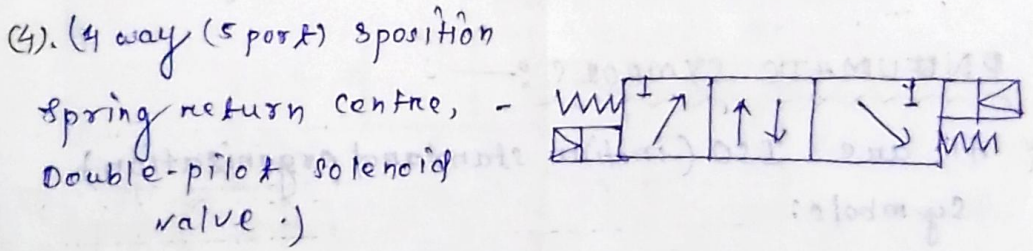 (4). (4 way (5 port) 3position
spring return centre, -
Double-pilot solenoid
valve .)